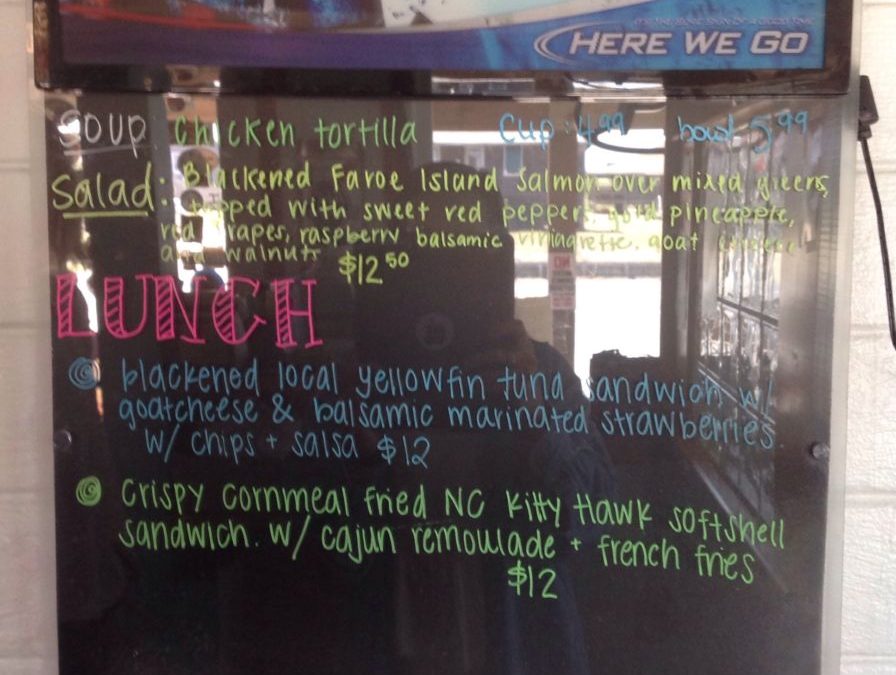 HERE WE GO
SOUP: Chicken tortilla Cup: 4.99 bowl 5.99
Salad: Blackened Faroe Island Salmon over mixed greens,
topped with sweet red peppers, gold pineapple,
red grapes, raspberry balsamic viniagrette, goat cheese
and walnuts $12.50
LUNCH
blackened local yellowfin tuna sandwich w/
goatcheese & balsamic marinated strawberries.
w/ chips + salsa $12
crispy cornmeal fried NC Kitty Hawk softshell
sandwich. w/ cajun remoulade + french fries
$12